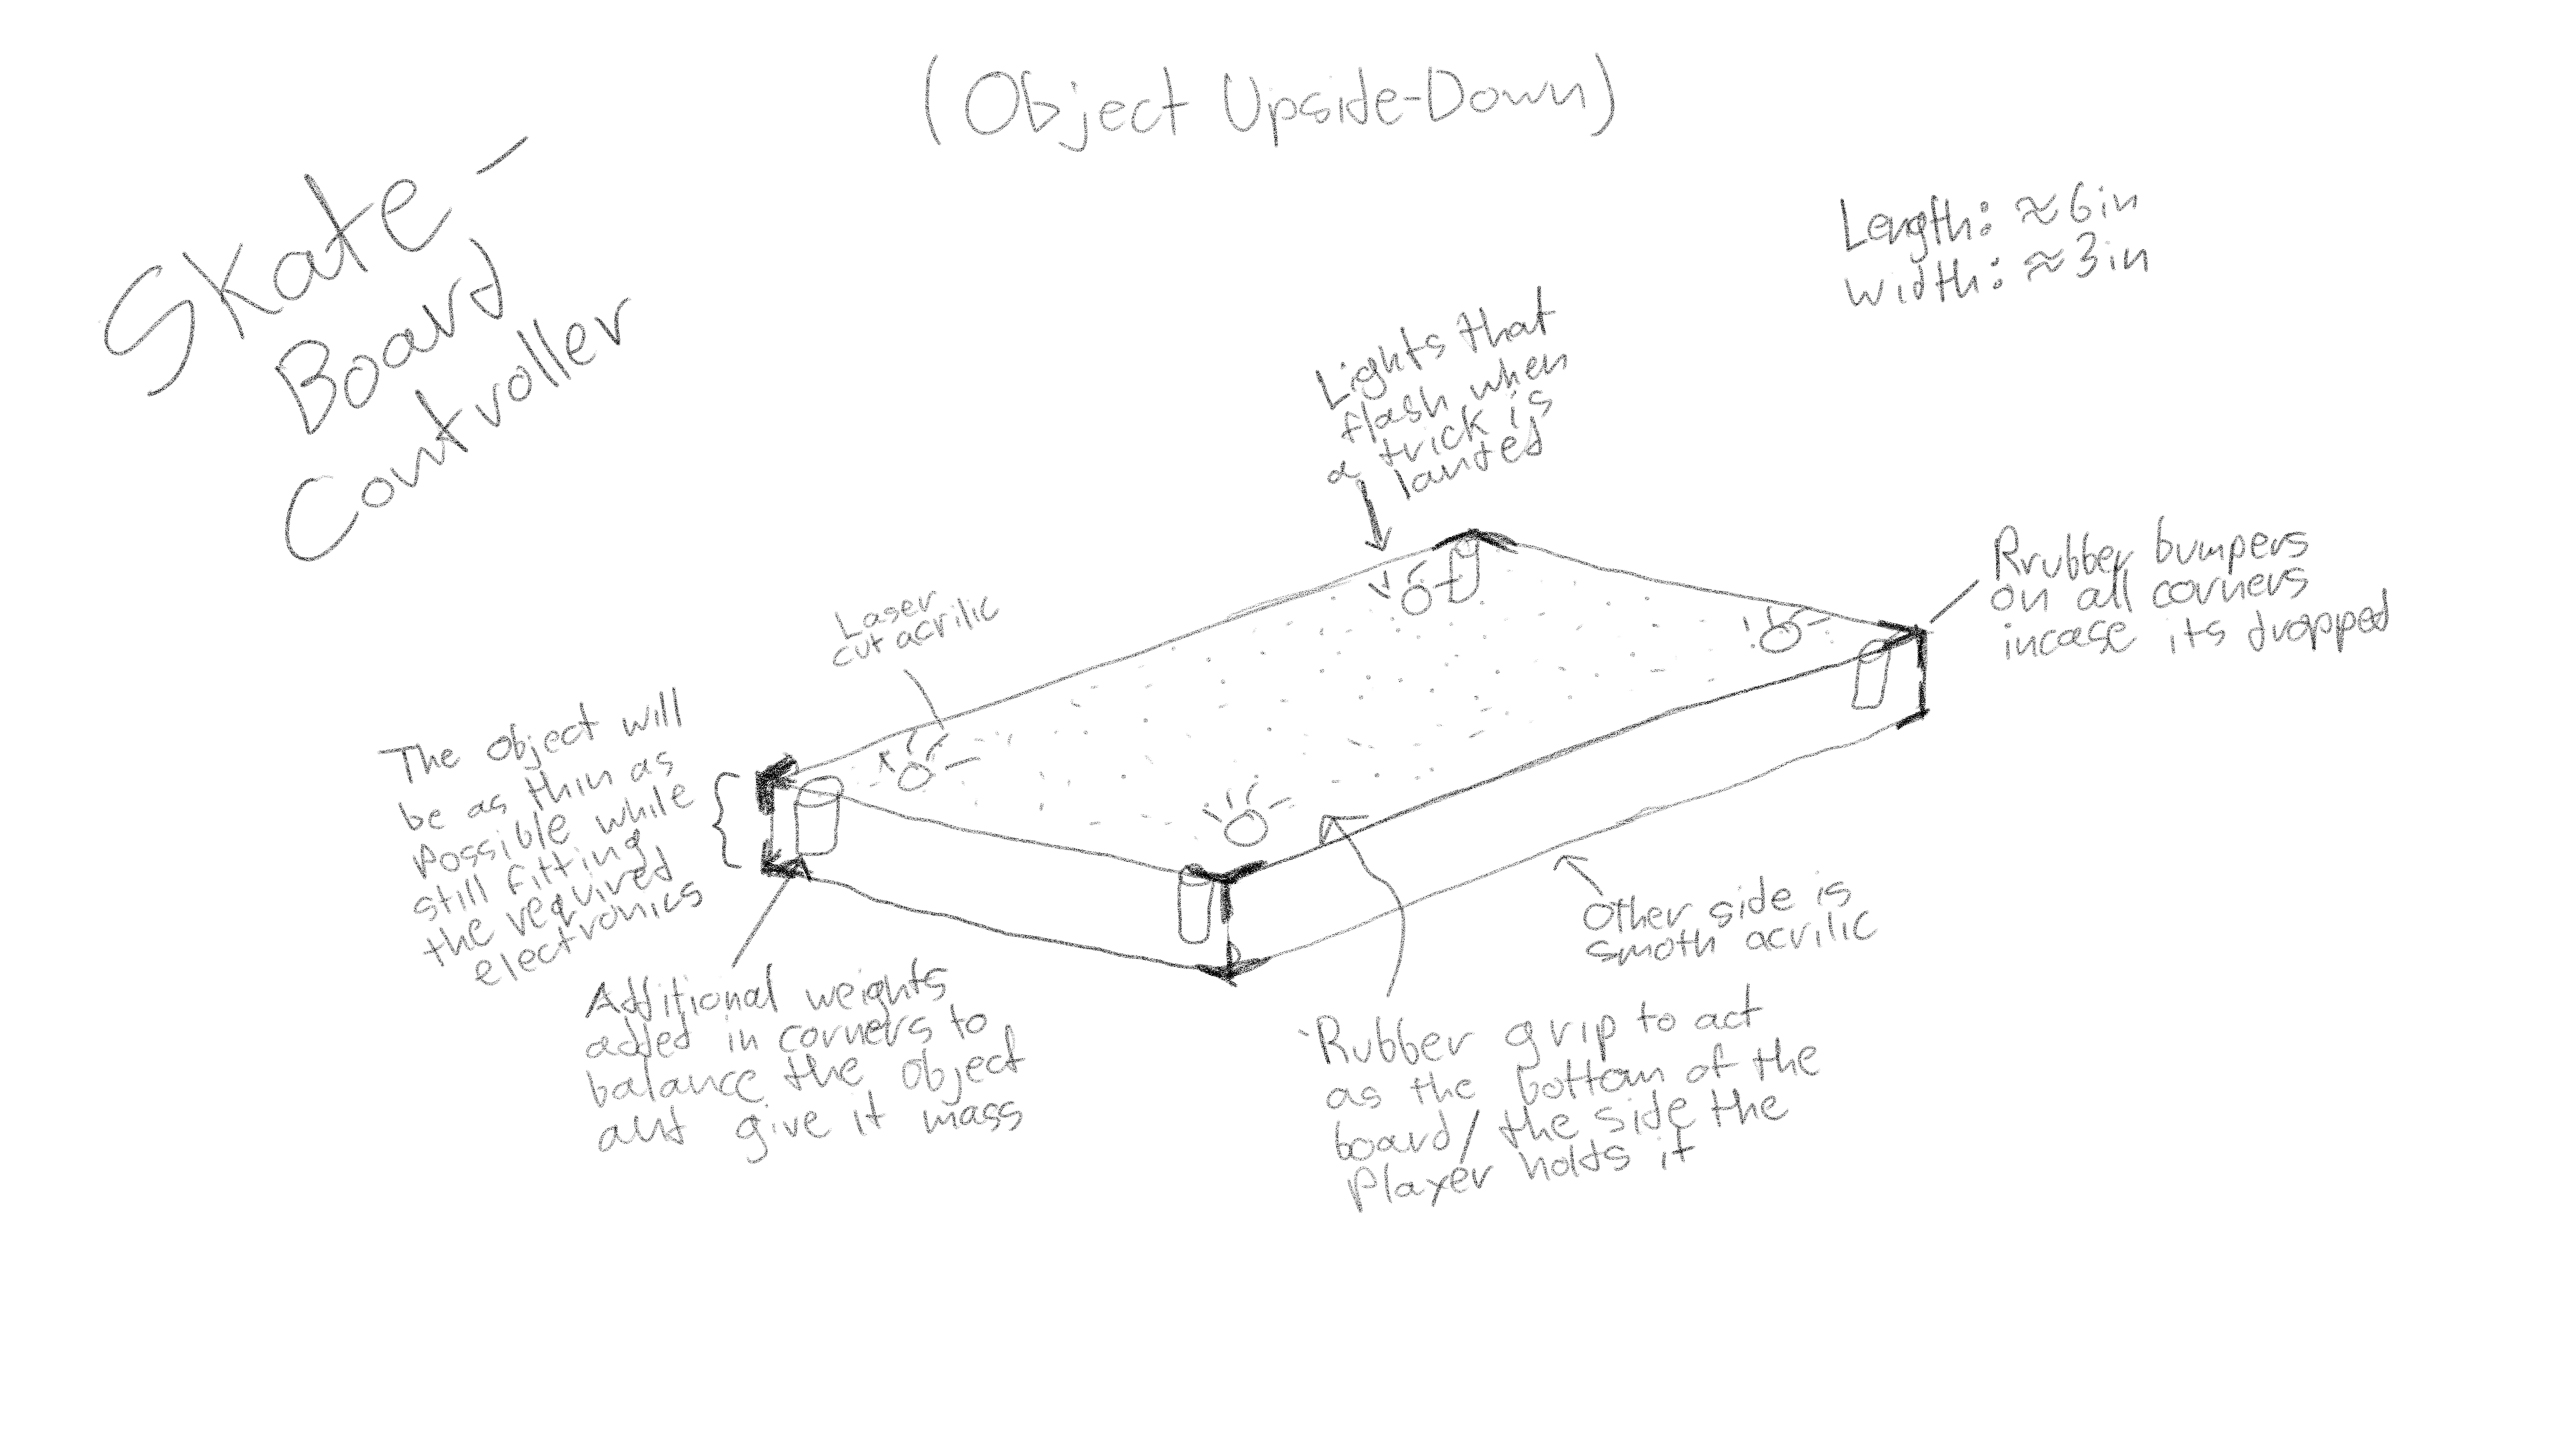 (Object Upside-Down)
Skate-
Board
Controller
Length: ≈6in
Width: ≈3in
Lights that
flash when
a trick is
landed
Rrubber bumpers
on all corners
incase its dropped
Laser
cut acrilic
The object will
be as thin as
possible while
still fitting
the required
electronics
Additional weights
added in corners to
balance the object
and give it mass
Other side is
smoth acrilic
Rubber grip to act
as the bottom of the
board/the side the
Player holds it